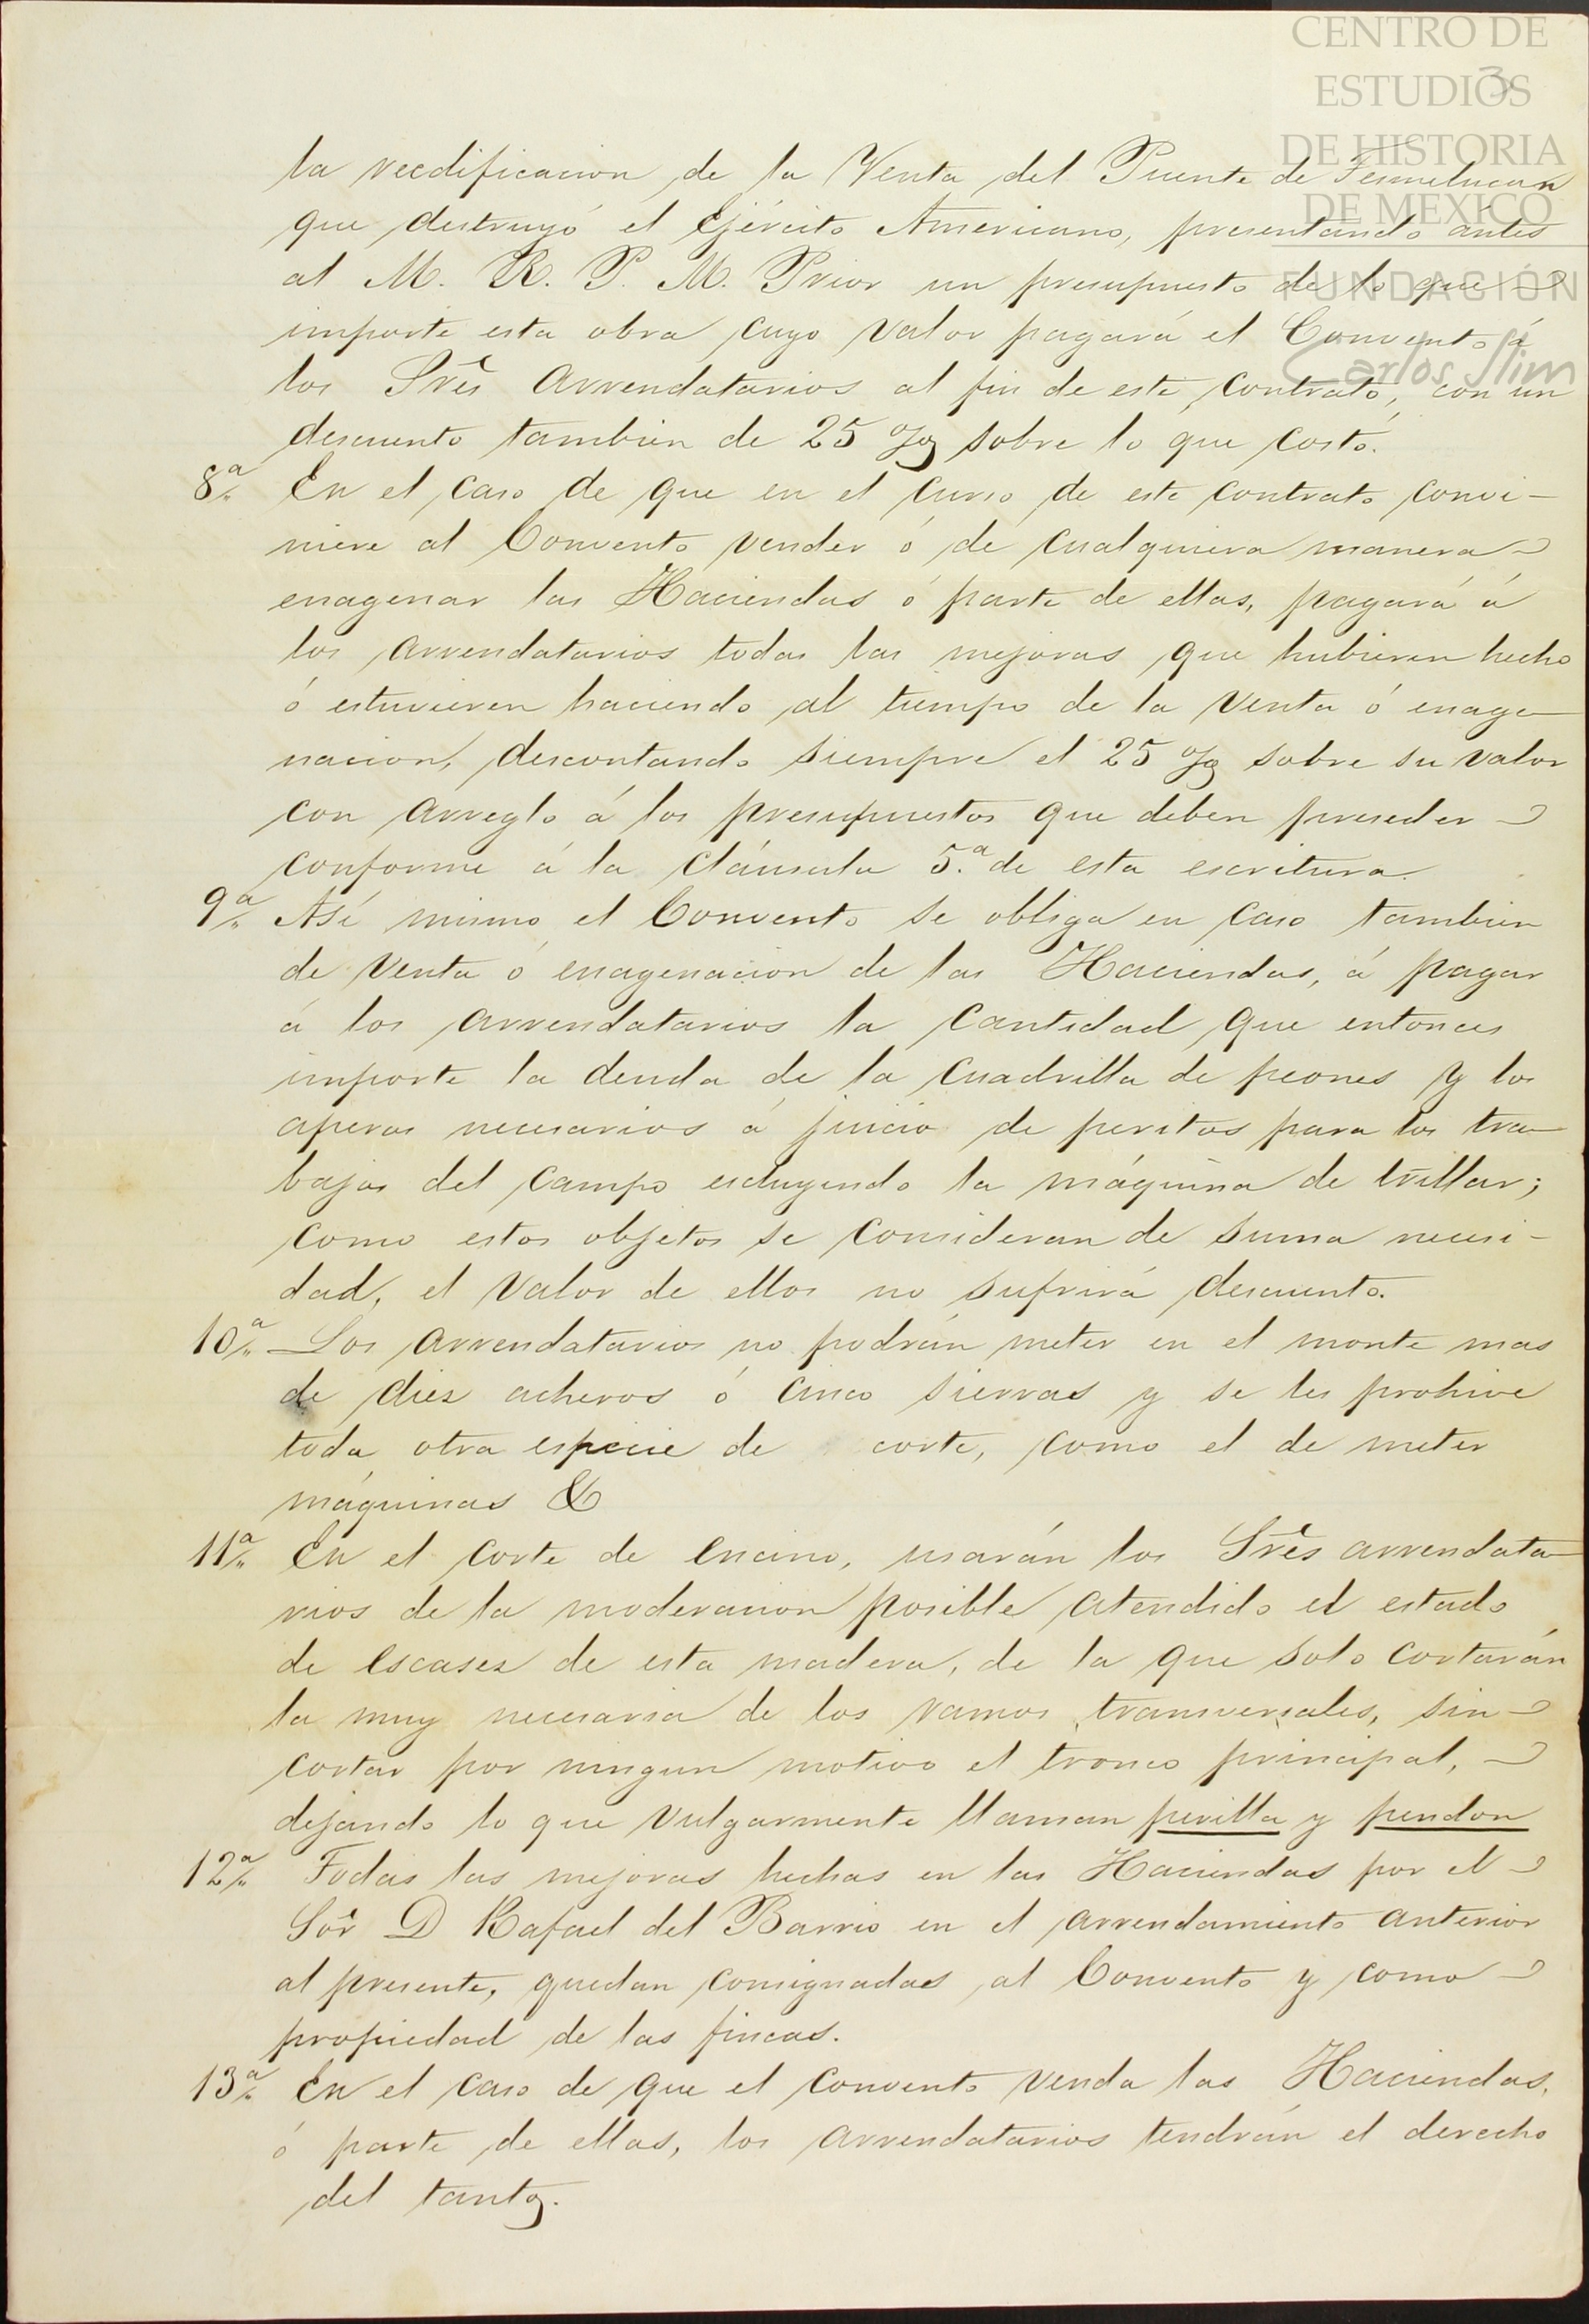 CENTRO DE
ESTUDIOS
DE HISTORIA
DE MEXICO
FUNDACIÓN
Carlos Slim
3
la reedificacion de la Venta del Puente de Tesmelucan
que destruyó el Ejército Americano, presentando ántes
al M. R. P. M. Prior un presupuesto de lo que
importe esta obra cuyo valor pagará el Convento á
los Srês Arrendatarios al fin de este contrato, con un
descuento tambien de 25 % sobre lo que costó.
8ª En el caso de que en el curso de este contrato convi-
niere al Convento vender ó de cualquiera manera
enagenar las Haciendas ó parte de ellas, pagará á
los arrendatarios todas las mejoras que hubieren hecho
ó estuvieren haciendo al tiempo de la venta ó enage-
nacion, descontando siempre el 25 % sobre su valor
con arreglo á los presupuestos que deben preseder
conforme á la cláusula 5.ª de esta escritura.
9ª Así mismo el Convento se obliga en caso tambien
de venta ó enagenacion de las Haciendas, á pagar
á los arrendatarios la cantidad que entonces
importe la deuda de la cuadrilla de peones y los
aperos necesarios á juicio de peritos para los tra-
bajos del campo escluyendo la máquina de trillar;
como estos objetos se consideran de suma necesi-
dad, el valor de ellos no sufrirá descuento.
10ª Los arrendatarios no podrán meter en el monte mas
de diez acheros ó cinco sierras y se les prohive
toda otra especie de corte, como el de meter
máquinas &
11ª En el corte de encino, usarán los Srês arrendata-
rios de la moderacion posible atendido el estado
de escases de esta madera, de la que solo cortarán
la muy necesaria de los ramos transversales, sin
cortar por ningun motivo el tronco principal,
dejando lo que vulgarmente llaman perilla y pendon
12ª Todas las mejoras hechas en las Haciendas por el
Sôr D Rafael del Barrio en el arrendamiento anterior
al presente, quedan consignadas al Convento y como
propiedad de las fincas.
13ª En el caso de que el convento venda las Haciendas,
ó parte de ellas, los arrendatarios tendrán el derecho
del tanto.